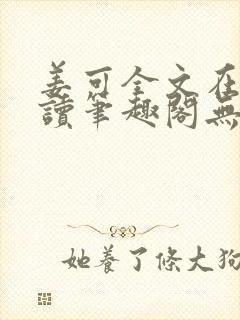 姜可全文在
讀筆趣閣無
她養了條大狗